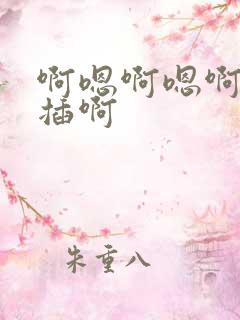 啊嗯啊嗯啊
插啊
朱重八